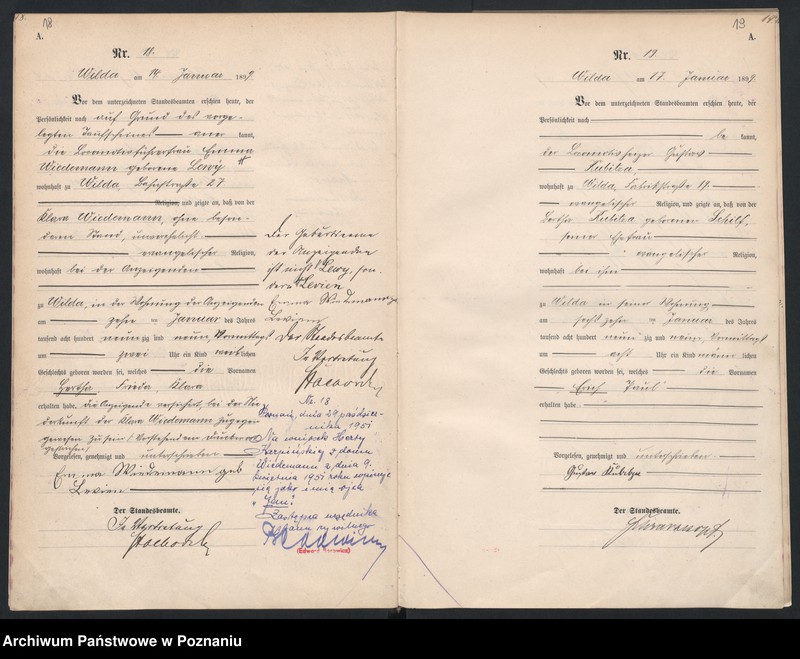 18
A.
Nr. 18.
Wilda am 14. Januar 1899.
Vor dem unterzeichneten Standesbeamten erschien heute, der
Persönlichkeit nach auf Grund des vorge-
legten Taufscheines aner kannt,
die Locomotivführerfrau Emma
Wiedemann geborene Lewy
wohnhaft zu Wilda, 27
Religion, und zeigte an, daß von der
Klara Wiedemann, ohne beson-
deren Stand, unverehelicht
evangelischer Religion,
wohnhaft bei der Anzeigenden
zu Wilda, in der Wohnung der Anzeigenden
am zehn ten Januar des Jahres
tausend acht hundert neunzig und neun, Vormittags
um zwei Uhr ein Kind weiblichen
Geschlechts geboren worden sei, welches die Vornamen
Hertha, Frieda, Klara
erhalten habe. Die Anzeigende versichert, bei der Nie-
derkunft der Klara Wiedemann zugegen
gewesen zu sein.
Vorgelesen, genehmigt und unterschrieben
Emma Wiedemann geb
Levien
Der Standesbeamte.
In Vertretung
Der Geburtsname
der Anzeigenden
ist nicht Lewy, son-
dern Levien
Emma Wiedemann
Levien
Der Standesbeamte
In Vertretung
Nr. 18
Poznań, dnia 29 paździer-
nika 1951
Na wniosek Herty
z domu
Wiedemann z dnia 9.
kwietnia 1951 roku wpisuje
się jako imię ojca
"Jan".
Zastępca urzędnika
stanu cywilnego
19
A.
Nr. 19.
Wilda am 17. Januar 1899.
Vor dem unterzeichneten Standesbeamten erschien heute, der
Persönlichkeit nach
be kannt,
der Locomotivheizer Gustav
Kubilka,
wohnhaft zu Wilda, Fabrikstraße 19.
evangelischer Religion, und zeigte an, daß von der
Bertha Kubilka geborenen Schilf,
seiner Ehefrau
evangelischer Religion,
wohnhaft bei ihm
zu Wilda in seiner Wohnung
am sechzehn ten Januar des Jahres
tausend acht hundert neunzig und neun, Vormittags
um acht Uhr ein Kind männ lichen
Geschlechts geboren worden sei, welches die Vornamen
Erich Paul
erhalten habe.
Vorgelesen, genehmigt und unterschrieben.
Gustav Kubilka
Der Standesbeamte.
Archiwum Państwowe w Poznaniu